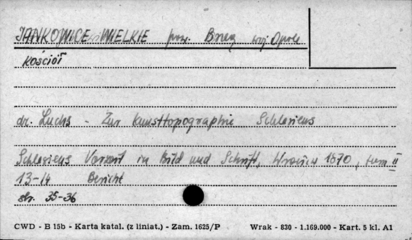 JANKOWICE WIELKIE pow. Brzeg woj. Opole
Kościół
dr. Luchs - Zur Kunsttopographie Schlesiens
Schlesiens Vorzeit in Bild und Schrift, 1870, tom II
13-14 Bericht
str. 35-36
CWD - B 15b - Karta katal. (z liniat.) - Zam. 1625/P Wrak - 830 - 1.169.000 - Kart. 5 kl. A1